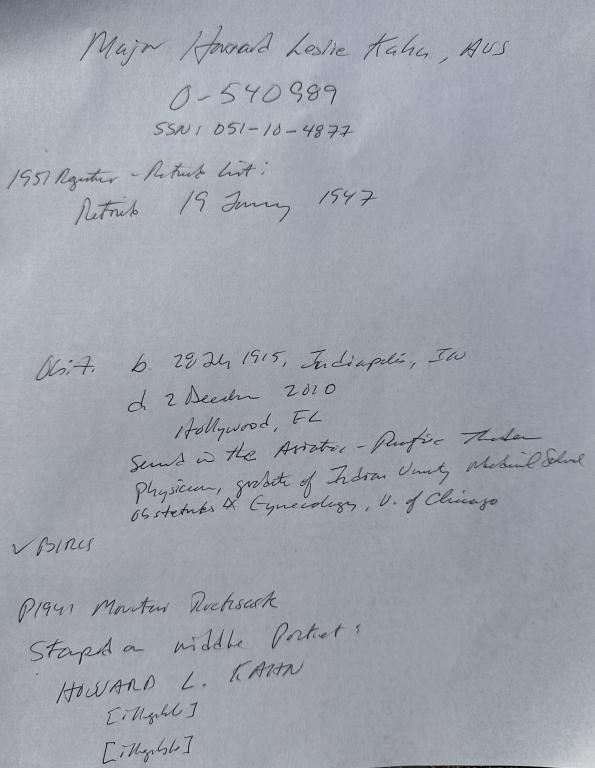 Major Howard Leslie Kahn, AUS
O-540989
SSN: 051-10-4877
1951 Register - Retired List:
Retired 19 January 1947
Obit. b. 28 July 1915, Indianapolis, IN
d. 2 December 2010
Hollywood, FL
Served in the Asiatic-Pacific Theater
Physician, graduate of Indiana University Medical School
Obstetrics & Gynecology, U. of Chicago
✓ BIRLS
P1941 Mountain Rucksack
Stamped on middle Pocket:
HOWARD L. KAHN
[illegible]
[illegible]